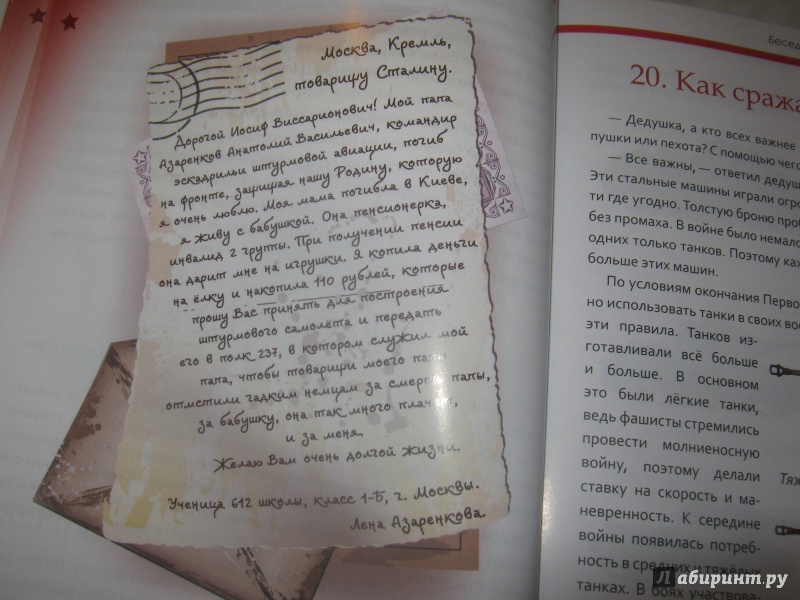 Москва, Кремль,
товарищу Сталину.
Дорогой Иосиф Виссарионович! Мой папа
Азаренков Анатолий Васильевич, командир
эскадрильи штурмовой авиации, погиб
на фронте, защищая нашу Родину, которую
я очень люблю. Моя мама погибла в Киеве,
я живу с бабушкой. Она пенсионерка,
инвалид 2 группы. При получении пенсии
она дарит мне на игрушки. Я копила деньги
на ёлку и накопила 110 рублей, которые
прошу Вас принять для построения
штурмового самолёта и передать
его в полк 237, в котором служил мой
папа, чтобы товарищи моего папы
отмстили гадким немцам за смерть папы,
за бабушку, она так много плачет,
и за меня.
Желаю Вам очень долгой жизни.
Ученица 612 школы, класс 1-Б, г. Москвы.
Лена Азаренкова.
Бесед
20. Как сража
— Дедушка, а кто всех важнее
пушки или пехота? С помощью чего
— Все важны, — ответил дедуш
Эти стальные машины играли огро
ти где угодно. Толстую броню проб
без промаха. В войне было немало
одних только танков. Поэтому каж
больше этих машин.
По условиям окончания Перво
но использовать танки в своих вос
эти правила. Танков из-
готавливали всё больше
и больше. В основном
это были лёгкие танки,
ведь фашисты стремились
провести молниеносную
войну, поэтому делали
ставку на скорость и ма-
невренность. К середине
войны появилась потреб-
ность в средних и тяжёлых
танках. В боях участвова-
Тяж
Лабиринт.ру